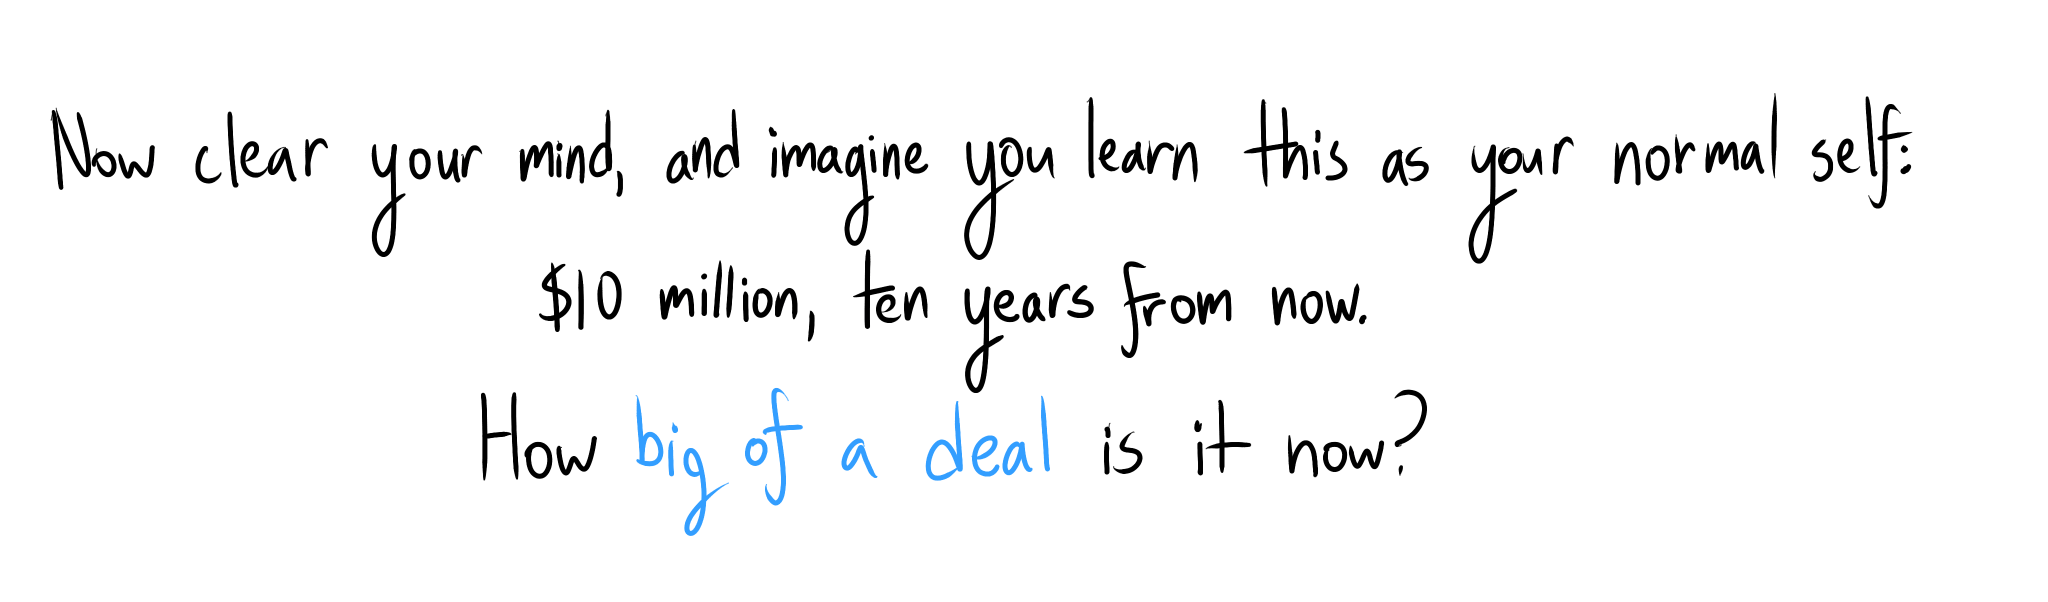 Now clear your mind, and imagine you learn this as your normal self:
$10 million, ten years from now.
How big of a deal is it now?